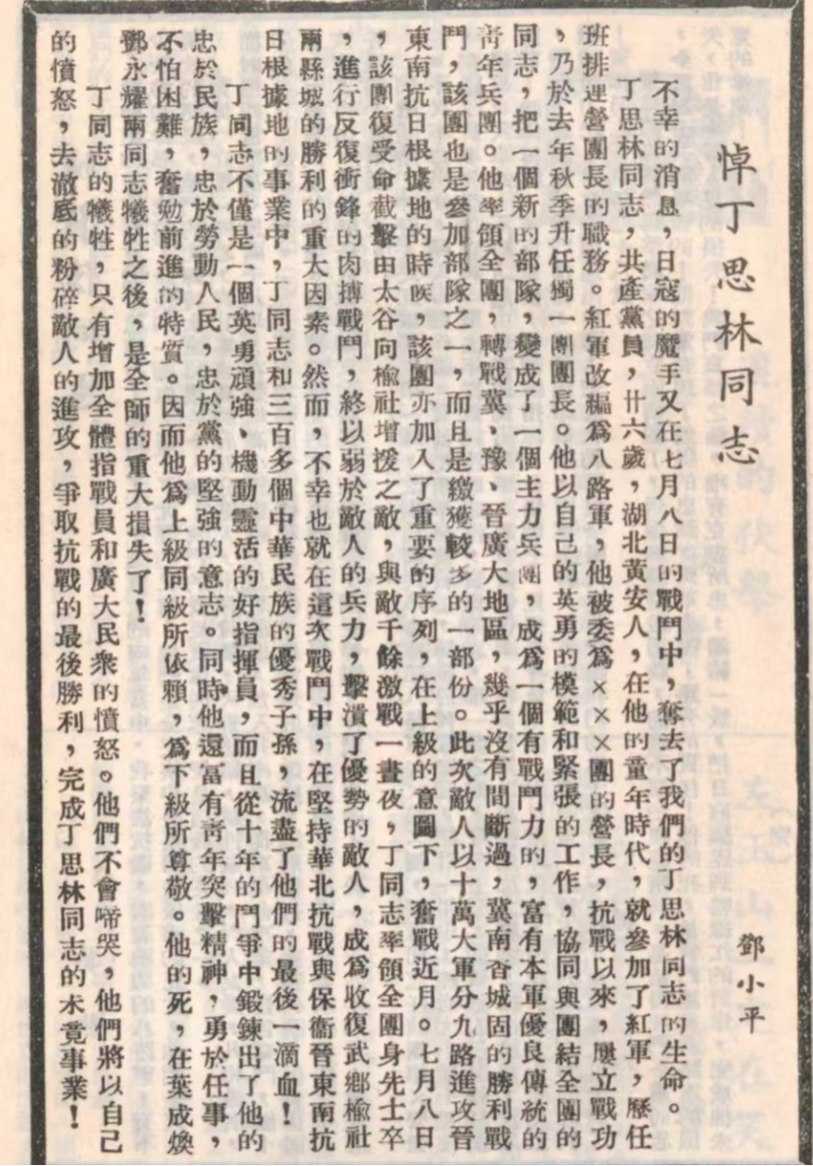 悼丁思林同志
鄧小平
不幸的消息，日寇的魔手又在七月八日的戰鬥中，奪去了我們的丁思林同志的生命。
丁思林同志，共產黨員，廿六歲，湖北黃安人，在他的童年時代，就參加了紅軍，歷任
班排連營團長的職務。紅軍改編爲八路軍，他被委爲×××團的營長，抗戰以來，屢立戰功
，乃於去年秋季升任獨一團團長。他以自己的英勇的模範和緊張的工作，協同與團結全團的
同志，把一個新的部隊，變成了一個主力兵團，成爲一個有戰鬥力的，富有本軍優良傳統的
青年兵團。他率領全團，轉戰冀、豫、晉廣大地區，幾乎沒有間斷過，冀南香城固的勝利戰
鬥，該團也是參加部隊之一，而且是繳獲較多的一部份。此次敵人以十萬大軍分九路進攻晉
東南抗日根據地的時候，該團亦加入了重要的序列，在上級的意圖下，奮戰近月。七月八日
，該團復受命截擊由太谷向榆社增援之敵，與敵千餘激戰一晝夜，丁同志率領全團身先士卒
，進行反復衝鋒的肉搏戰鬥，終以弱於敵人的兵力，擊潰了優勢的敵人，成爲收復武鄉榆社
兩縣城的勝利的重大因素。然而，不幸也就在這次戰鬥中，在堅持華北抗戰與保衞晉東南抗
日根據地的事業中，丁同志和三百多個中華民族的優秀子孫，流盡了他們的最後一滴血！
丁同志不僅是一個英勇頑強、機動靈活的好指揮員，而且從十年的鬥爭中鍛鍊出了他的
忠於民族，忠於勞動人民，忠於黨的堅強的意志。同時他還富有靑年突擊精神，勇於任事，
不怕困難，奮勉前進的特質。因而他爲上級同級所依賴，爲下級所尊敬。他的死，在葉成煥
鄧永耀兩同志犧牲之後，是全師的重大損失了！
丁同志的犧牲，只有增加全體指戰員和廣大民衆的憤怒。他們不會啼哭，他們將以自己
的憤怒，去澈底的粉碎敵人的進攻，爭取抗戰的最後勝利，完成丁思林同志的未竟事業！